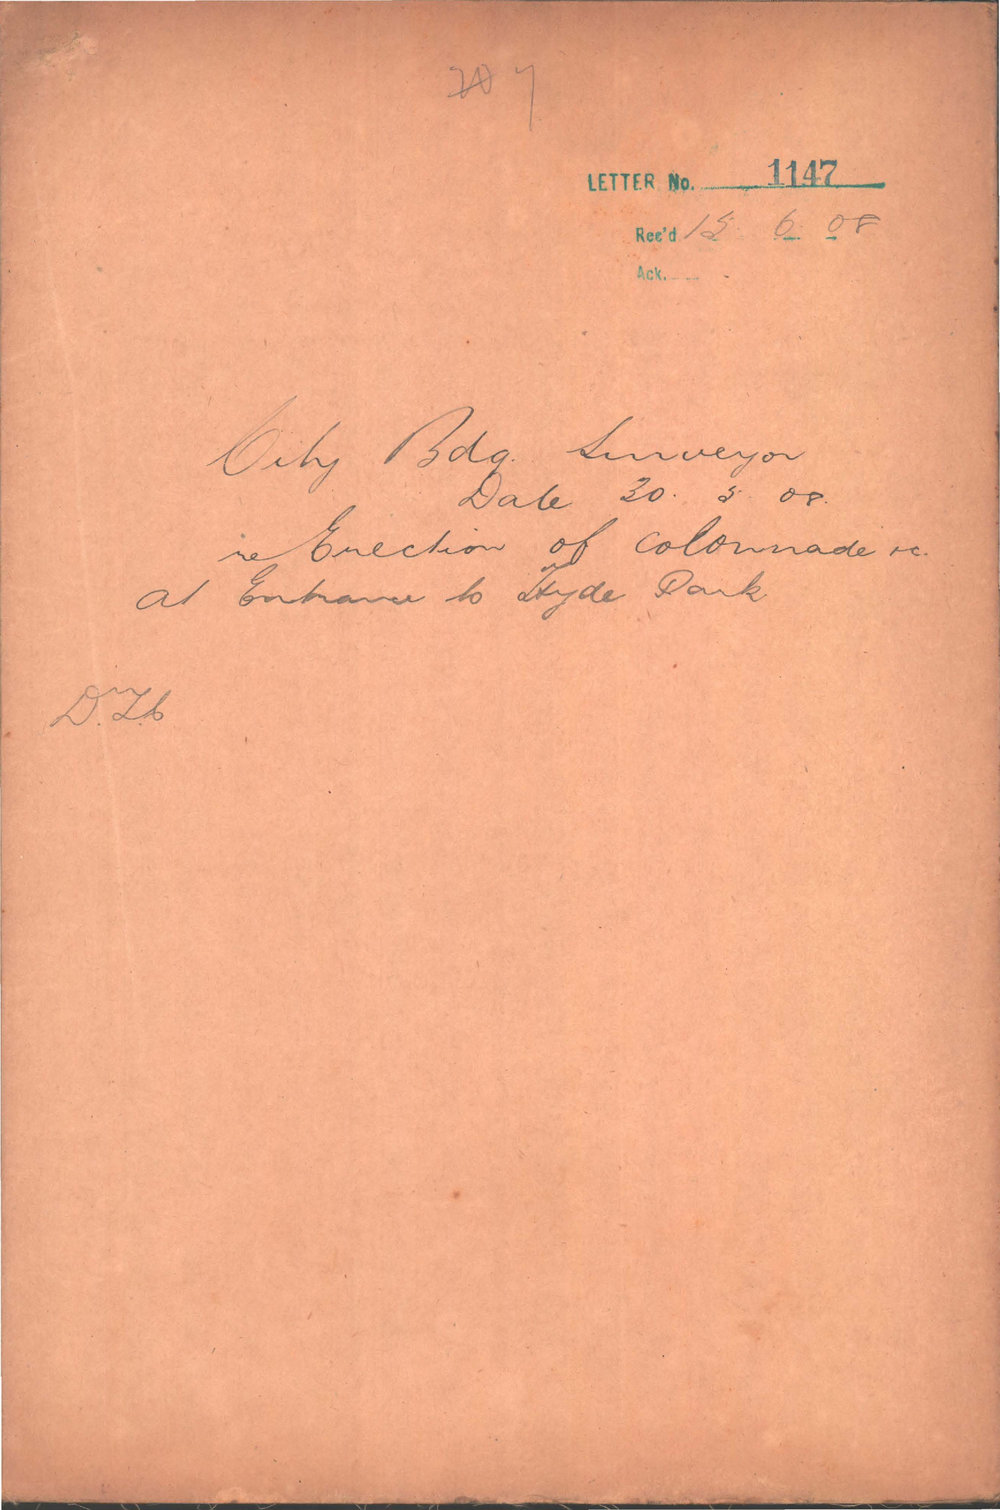 7
LETTER No. 1147
Rec'd 15 6 08
Ack.
City Bdg. Surveyor
Date 30. 5 08.
re Erection of Colonnade &c.
at Entrance to Hyde Park